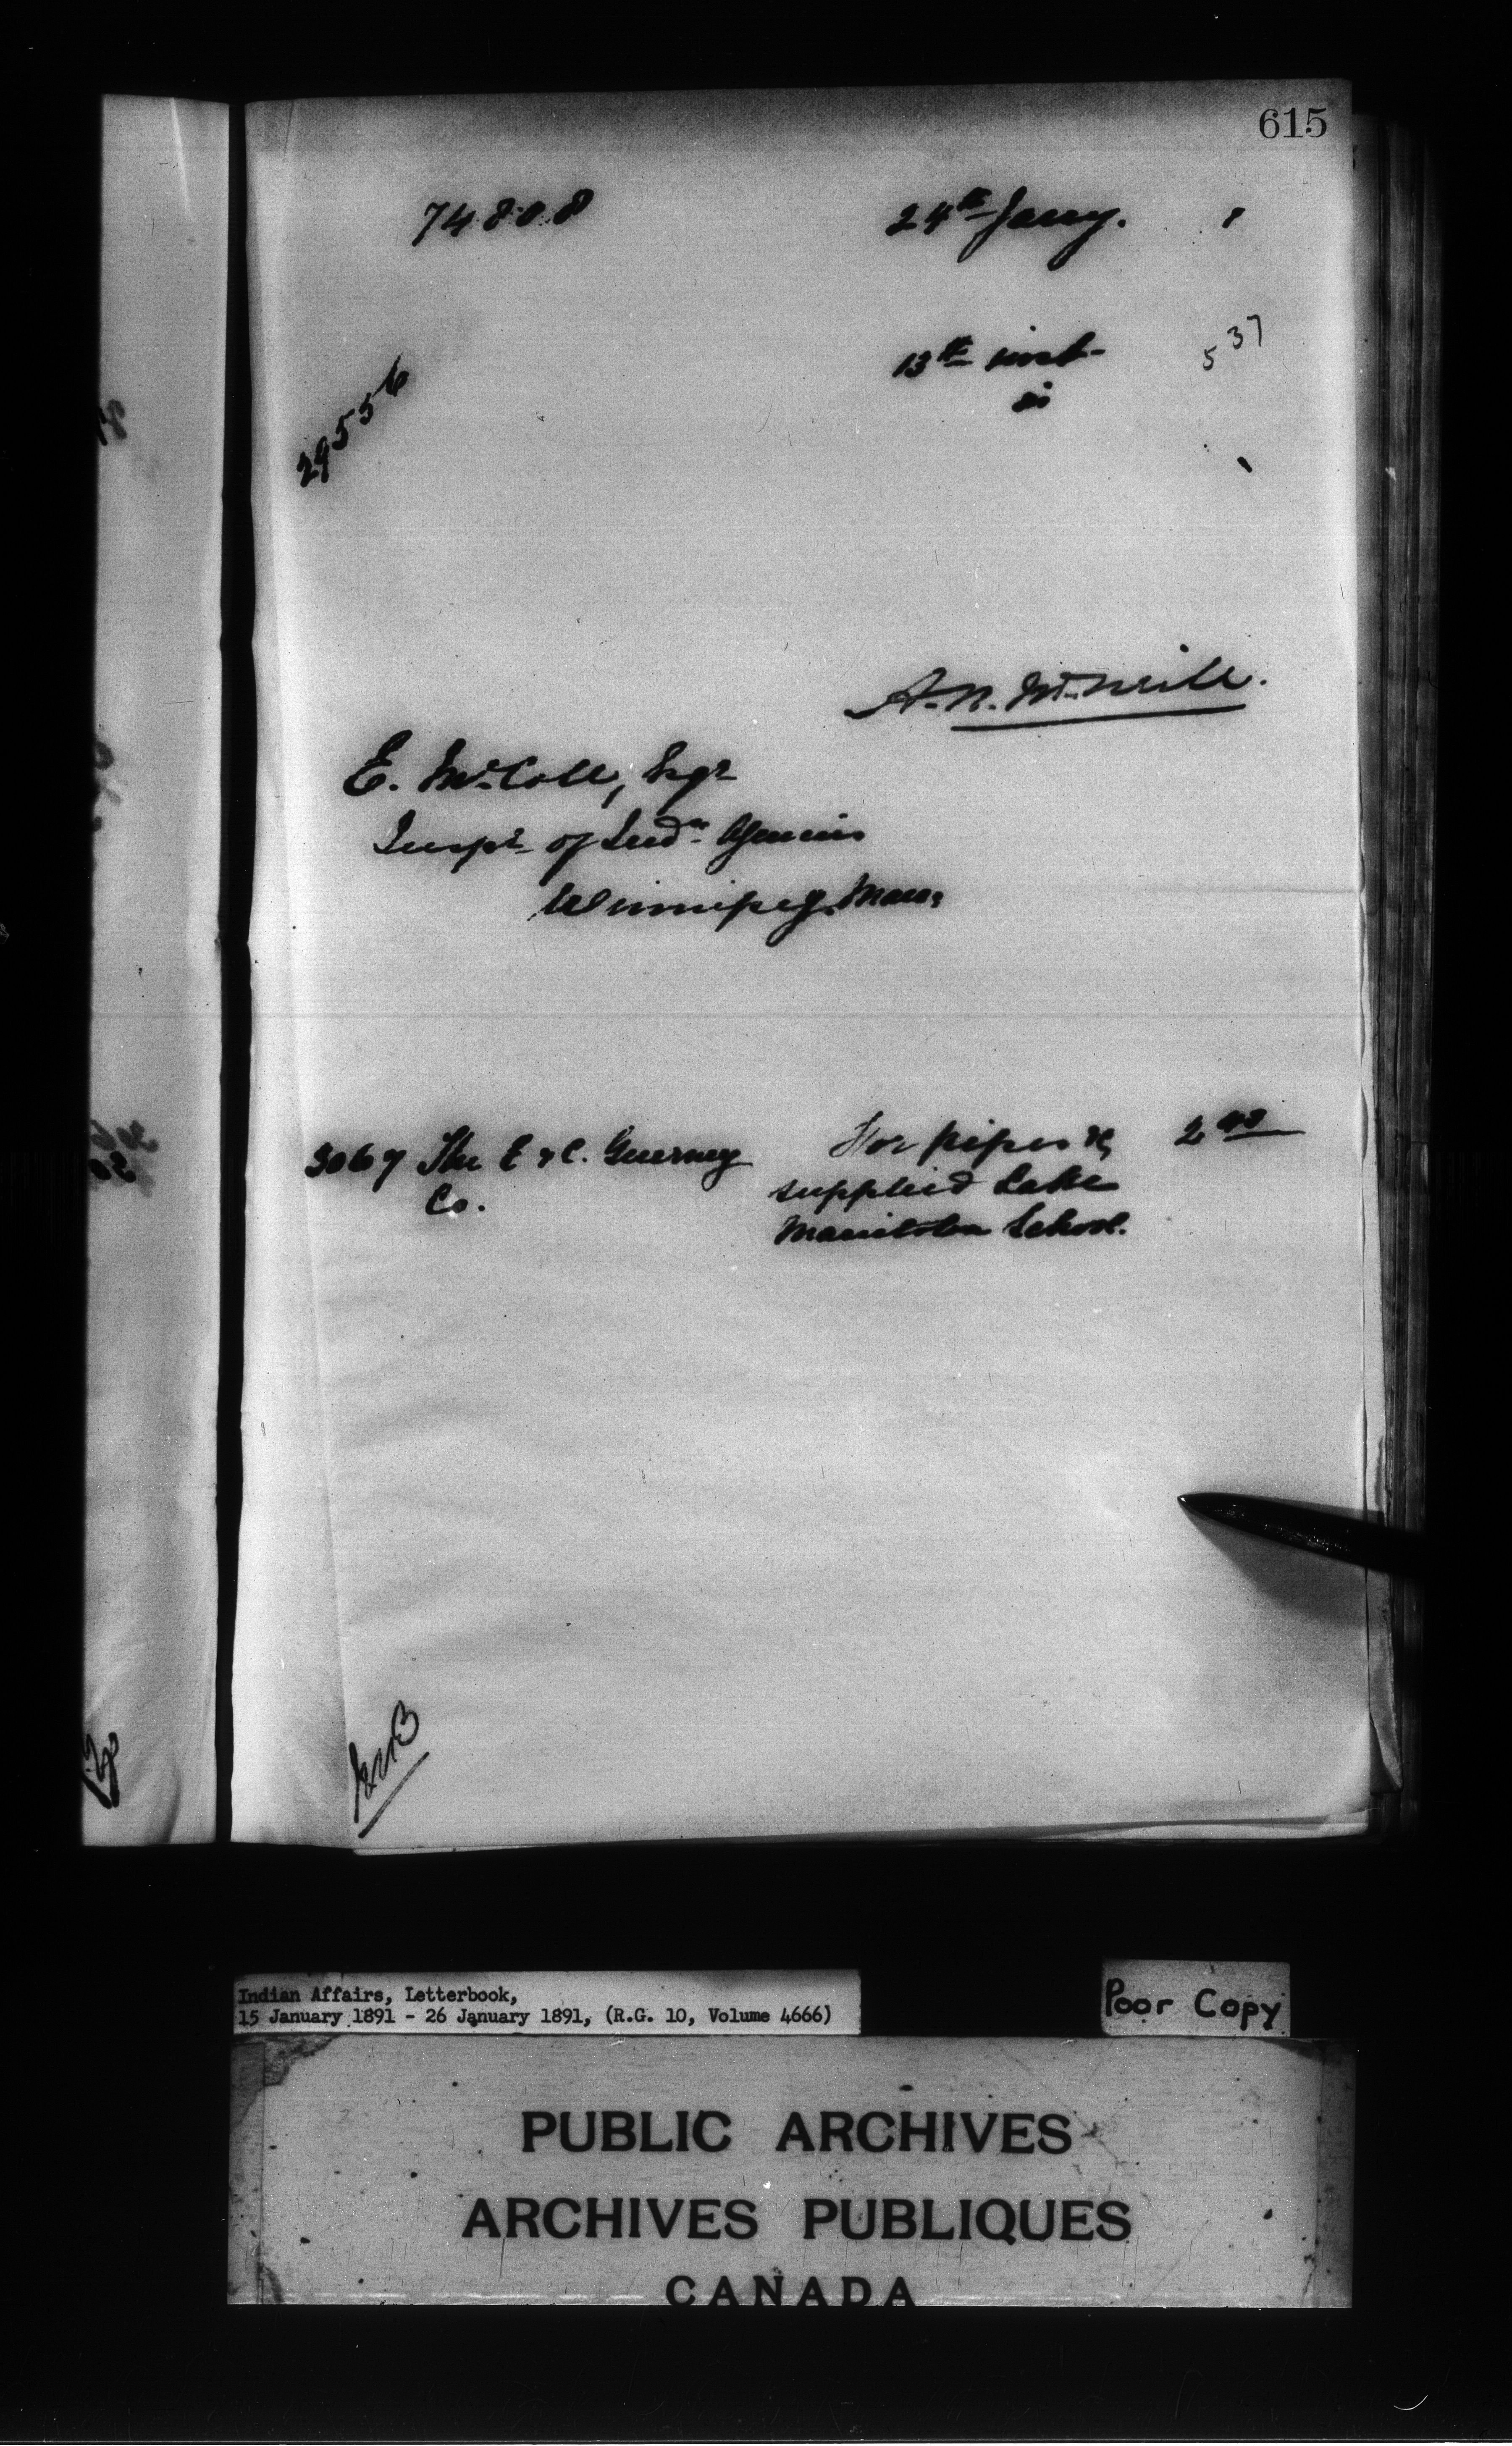 615
74808 24th Jany. 1
13th inst- 537
is
29556
A. N. McNeill.
E. McColl, Esqr
Inspr. of Indn. Agencies
Winnipeg, Man:
3067 The E & C. Guerney For pipes &c 2 40
Co. supplied Lake
Manitoba School.
Indian Affairs, Letterbook,
15 January 1891 - 26 January 1891, (R.G. 10, Volume 4666)
Poor Copy
PUBLIC ARCHIVES
ARCHIVES PUBLIQUES
CANADA